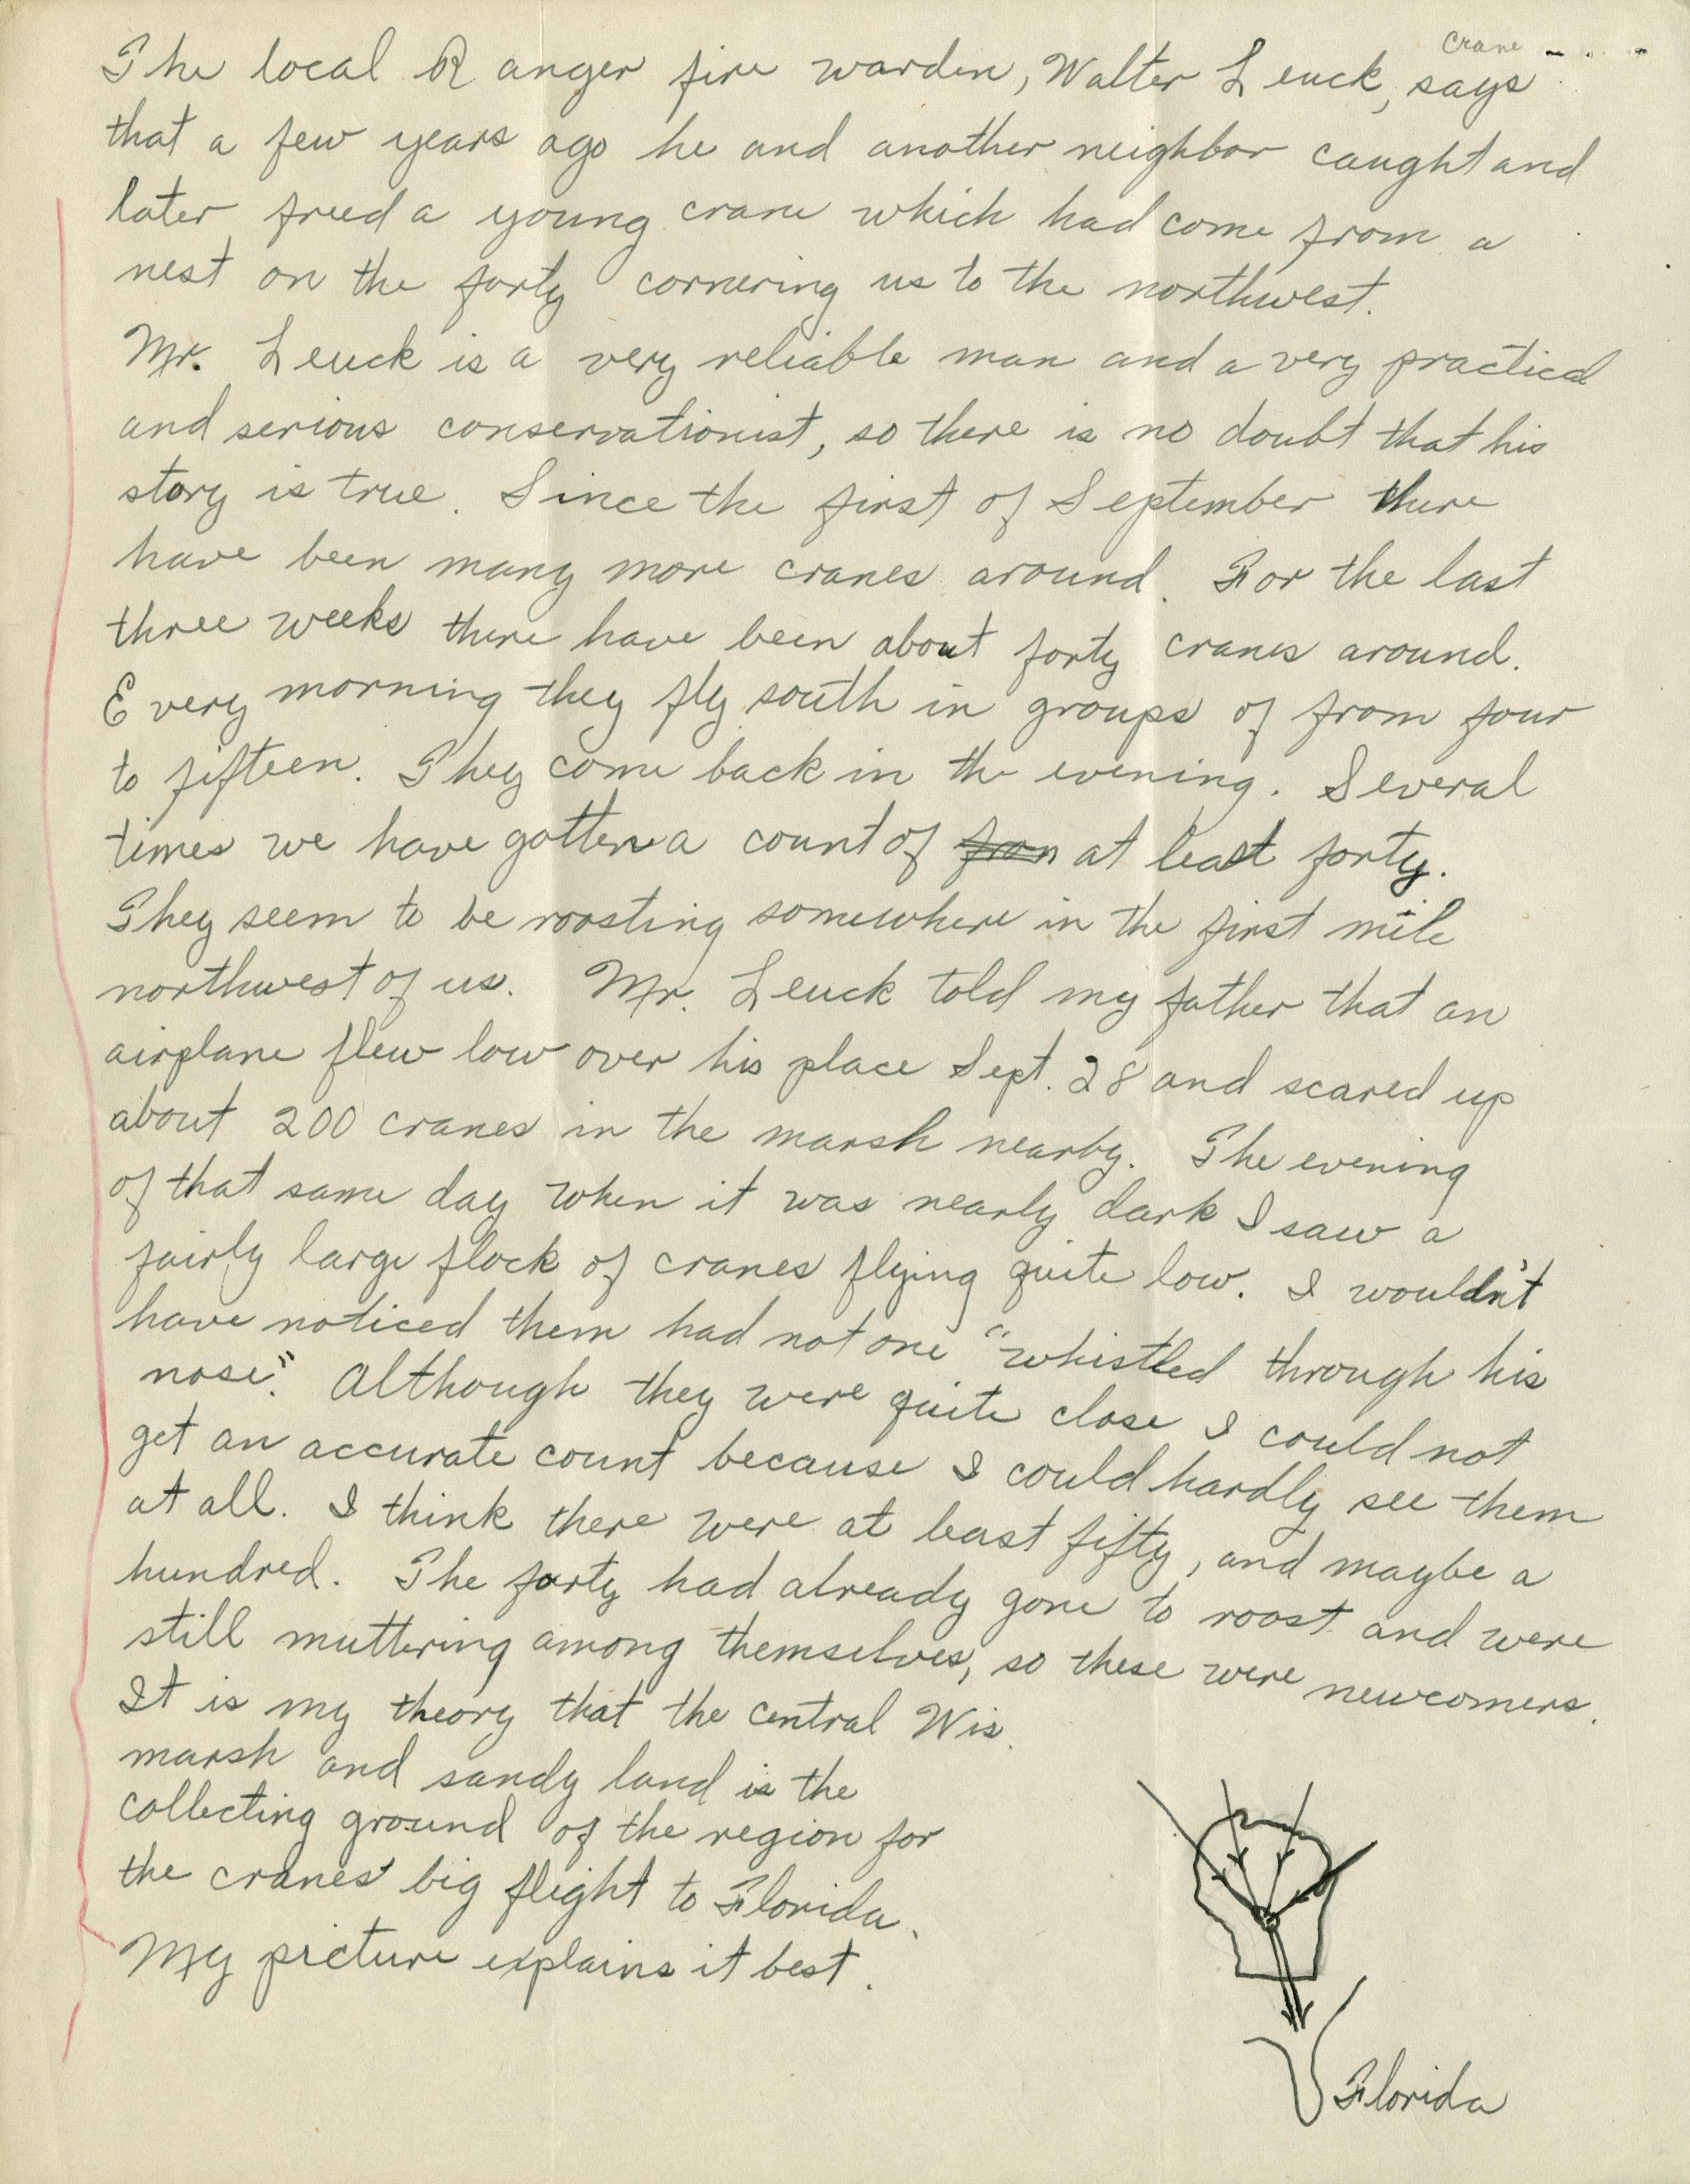 Crane
The local Ranger fire warden, Walter Leuck, says
that a few years ago he and another neighbor caught and
later freed a young crane which had come from a
nest on the forty cornering us to the northwest.
Mr. Leuck is a very reliable man and a very practical
and serious conservationist, so there is no doubt that his
story is true. Since the first of September there
have been many more cranes around. For the last
three weeks there have been about forty cranes around.
Every morning they fly south in groups of from four
to fifteen. They come back in the evening. Several
times we have gotten a count of at least forty.
They seem to be roosting somewhere in the first mile
northwest of us. Mr. Leuck told my father that an
airplane flew low over his place Sept. 28 and scared up
about 200 cranes in the marsh nearby. The evening
of that same day when it was nearly dark I saw a
fairly large flock of cranes flying quite low. I wouldn't
have noticed them had not one "whistled through his
nose". Although they were quite close I could not
get an accurate count because I could hardly see them
at all. I think there were at least fifty, and maybe a
hundred. The forty had already gone to roost and were
still muttering among themselves, so these were newcomers.
It is my theory that the central Wis.
marsh and sandy land is the
collecting ground of the region for
the cranes' big flight to Florida.
My picture explains it best.
Florida